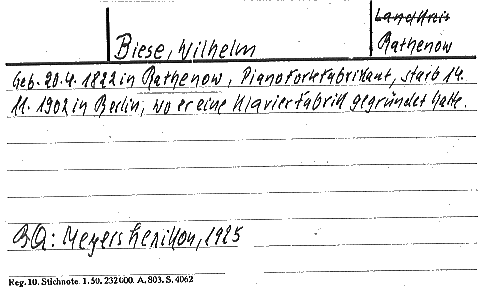 Landkreis
Biese, Wilhelm
Rathenow
Geb. 20.4.1822 in Rathenow, Pianofortefabrikant, starb 14.
11.1902 in Berlin, wo er eine Klavierfabrik gegründet hatte.
BQ: Meyers Lexikon, 1925
Reg. 10. Stichnote. 1. 50. 232000. A. 803. S. 4062